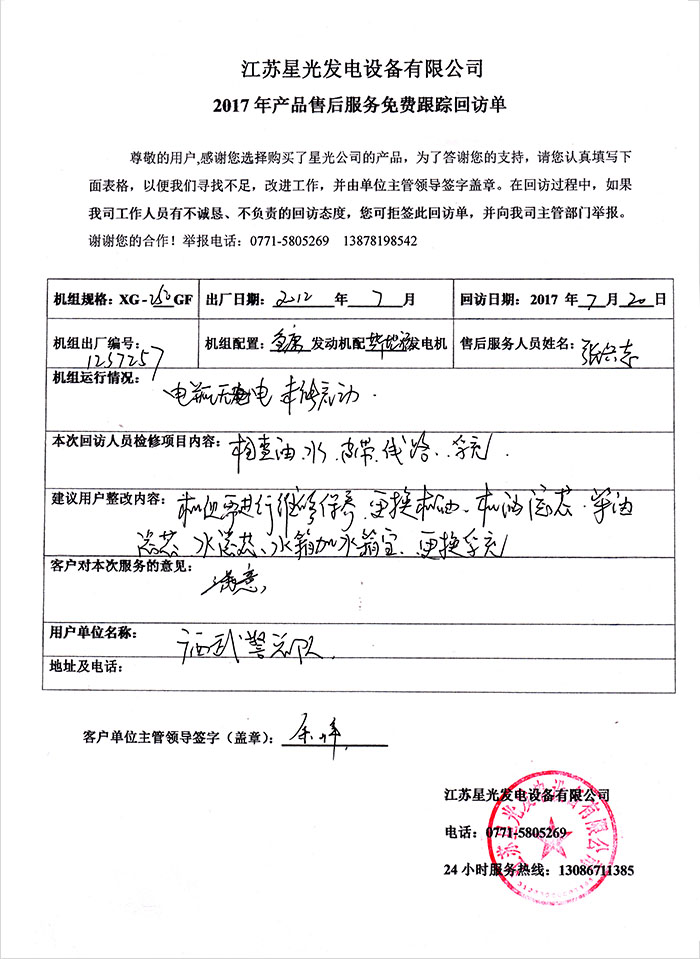 江苏星光发电设备有限公司
2017 年产品售后服务免费跟踪回访单
尊敬的用户,感谢您选择购买了星光公司的产品，为了答谢您的支持，请您认真填写下
面表格，以便我们寻找不足，改进工作，并由单位主管领导签字盖章。在回访过程中，如果
我司工作人员有不诚恳、不负责的回访态度，您可拒签此回访单，并向我司主管部门举报。
谢谢您的合作！举报电话：0771-5805269 13878198542
机组规格：XG-250GF 出厂日期：2012 年 7 月 回访日期：2017 年 7 月 20 日
机组出厂编号： 机组配置： 发动机配 发电机 售后服务人员姓名：
1257257
机组运行情况：
电瓶无电 未能启动.
本次回访人员检修项目内容：检查油、水、皮带、线路、浮充.
建议用户整改内容：机组需进行维修保养、更换机油、机油滤芯、柴油
滤芯、水滤芯、水箱加水箱宝、更换浮充
客户对本次服务的意见：
满意,
用户单位名称：
广西武警总队
地址及电话：
客户单位主管领导签字（盖章）：
江苏星光发电设备有限公司
电话：0771-5805269
24 小时服务热线：13086711385
江苏星光发电设备有限公司